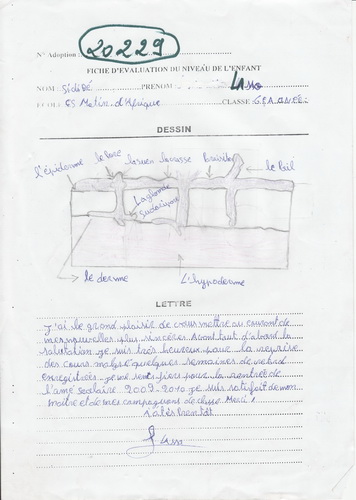 N° Adoption : 20229
FICHE D'EVALUATION DU NIVEAU DE L'ENFANT
NOM : Sidibé PRENOM
ECOLE : CLASSE :
DESSIN
L'épiderme le pore
le Poil
La glande
Sudoripare
le derme L'hypoderme
LETTRE
J'ai le grand plaisir de vous mettre au courant de
mes nouvelles plus sincères. Avant tout d'abord la
salutation je suis très heureux pour la reprise
des cours malgré quelques semaines de retard
enregistrées. je me sens fiers pour la rentrée de
l'anée scolaire 2009-2010 je suis satisfait de mon
maître et de mes compagnons de classe. Merci !
à bientôt